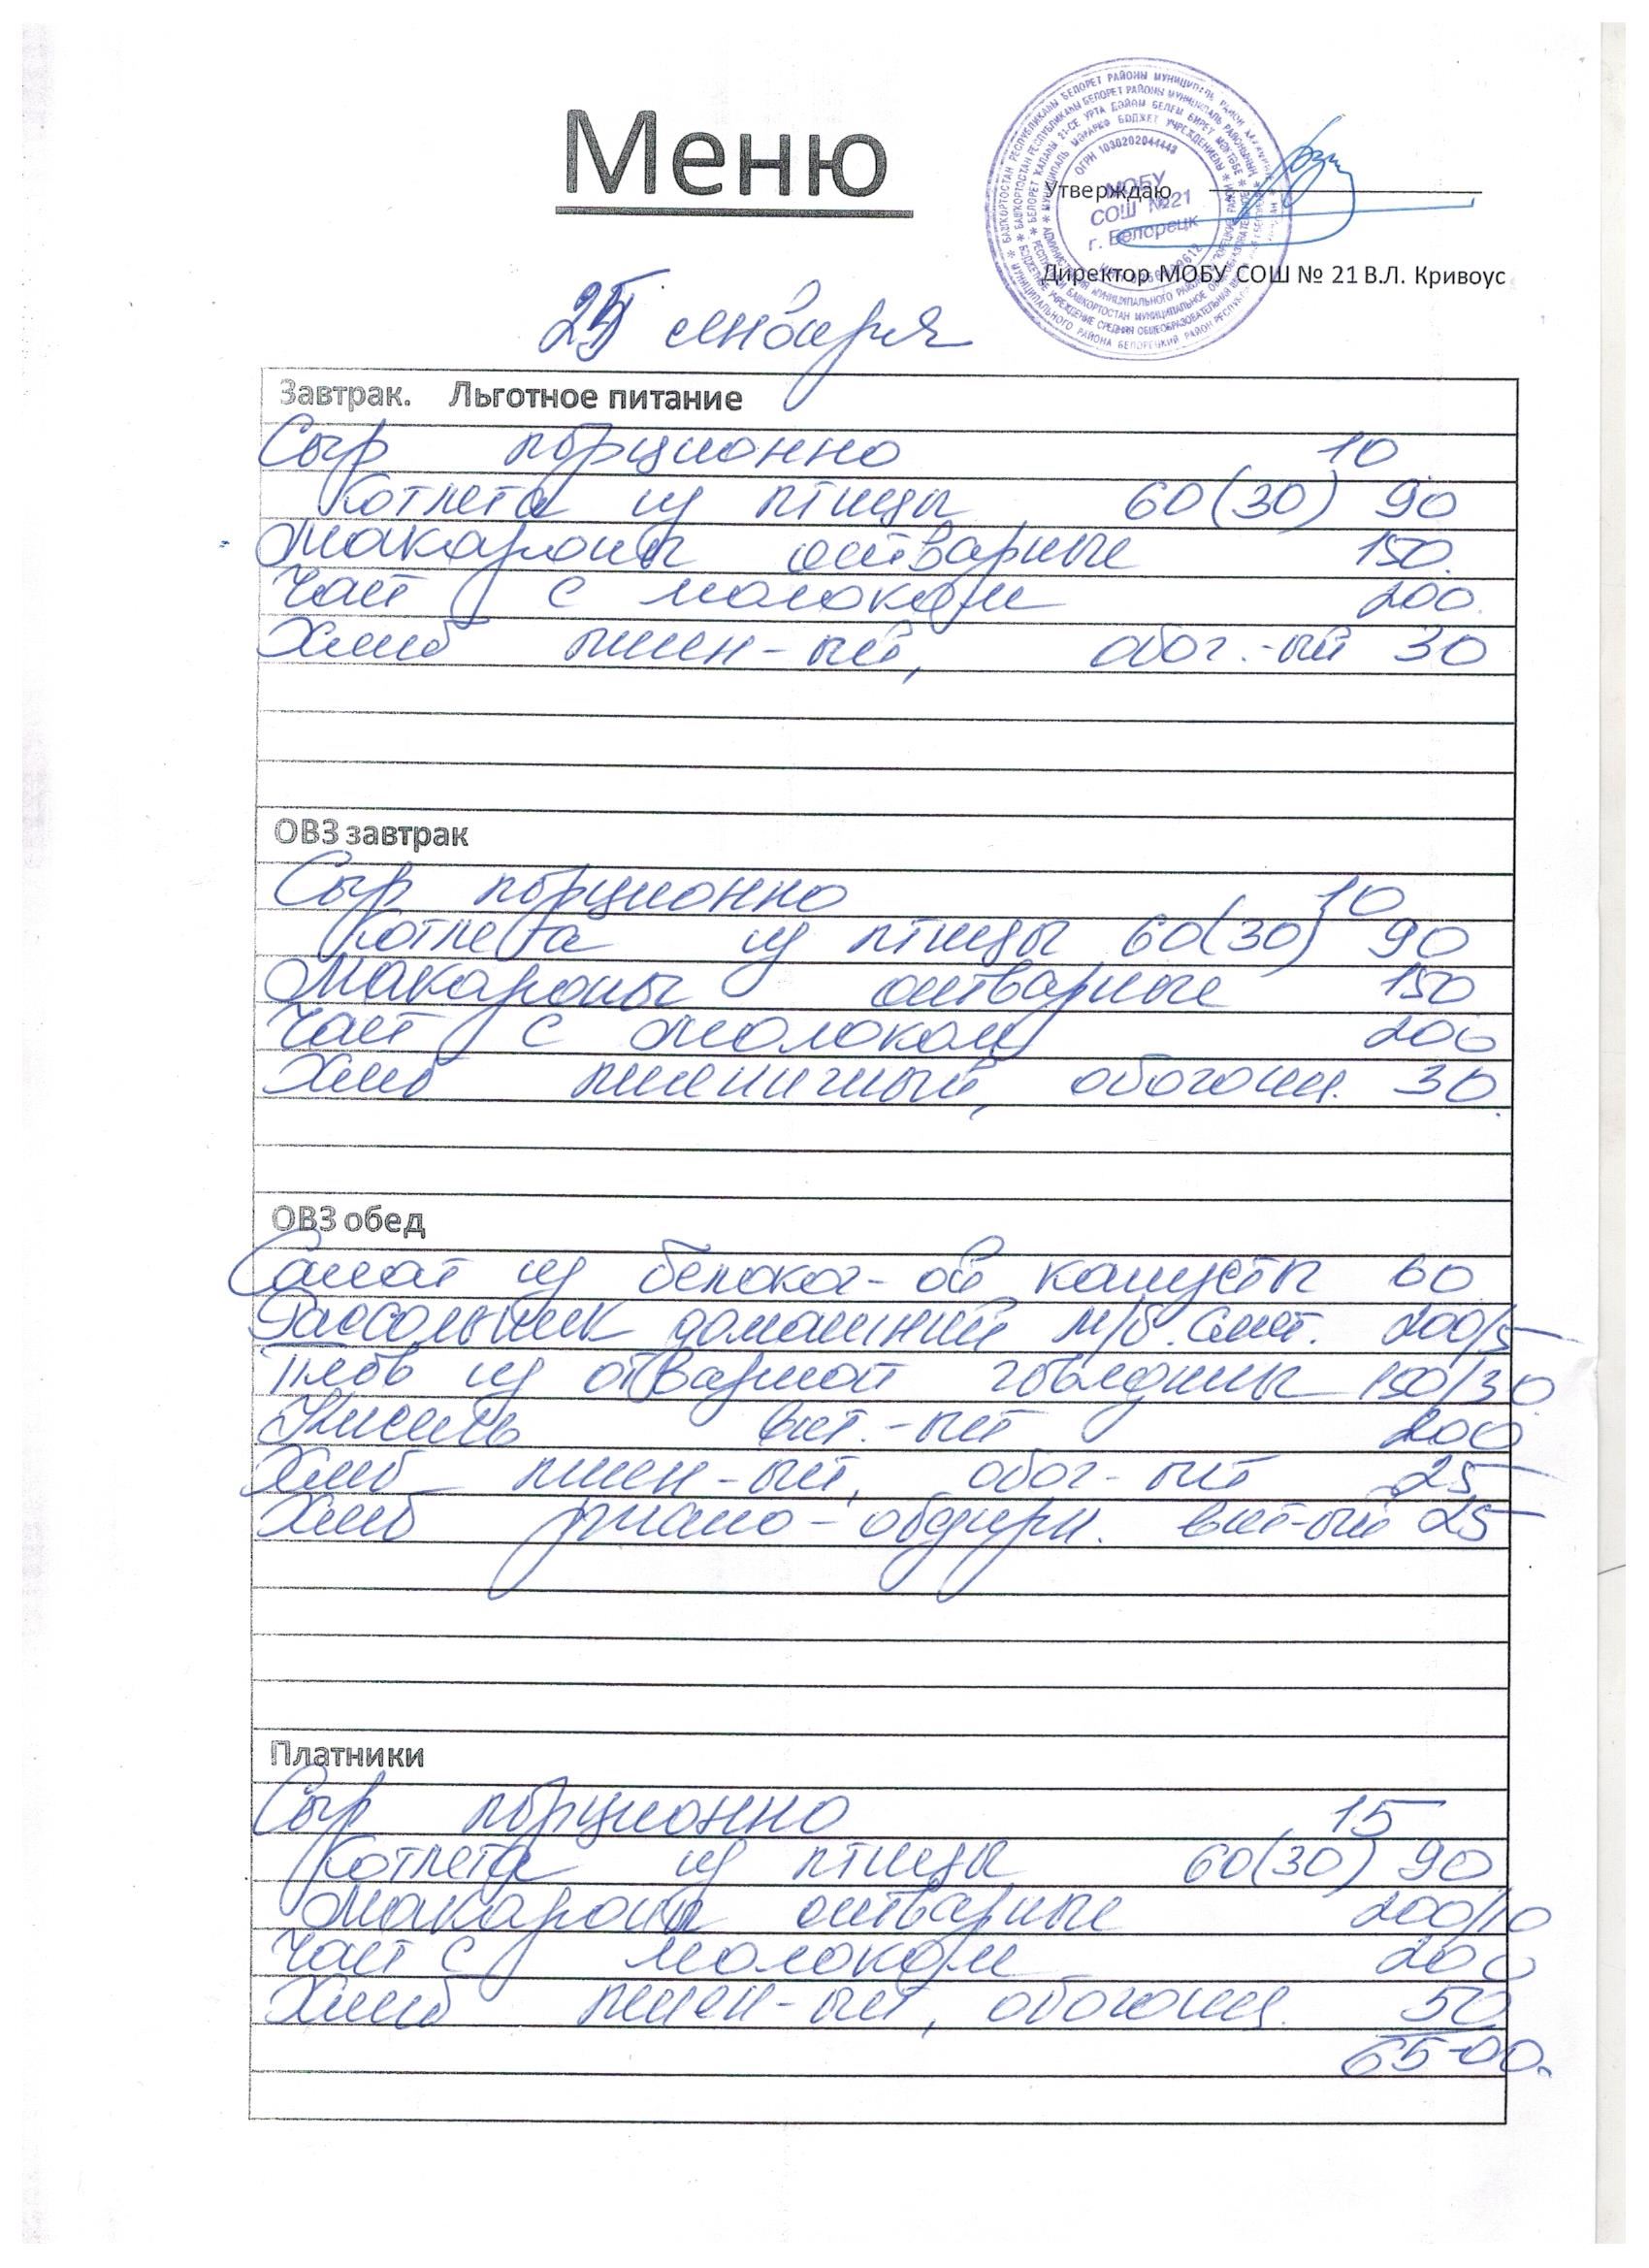 Меню
Утверждаю
МОБУ
СОШ №21
г. Белорецк
ОГРН 1030202044448
Директор МОБУ СОШ № 21 В.Л. Кривоус
января
Завтрак. Льготное питание
Сыр порционно 10
Котлета из птицы 60(30) 90
Макароны отварные 150.
Чай с молоком 200.
Хлеб пшен-ый, обог.-ый 30
ОВЗ завтрак
Сыр порционно 10
Котлета из птицы 60(30) 90
Макароны отварные 150
Чай с молоком 200
Хлеб пшеничный, обогощ. 30.
ОВЗ обед
Салат из белокоч-ой капусты 60
Рассольник домашний м/б. смет. 200/5
Плов из отварной говядины 150/30
Кисель вит.-ый 200
Хлеб пшен-ый, обог-ый 25
Хлеб ржано-обдирн. вит-ый 25
Платники
Сыр порционно 15
Котлета из птицы 60(30) 90
Макароны отварные 200/10
Чай с молоком 200
Хлеб пшен-ый, обогощ. 50
65-00.